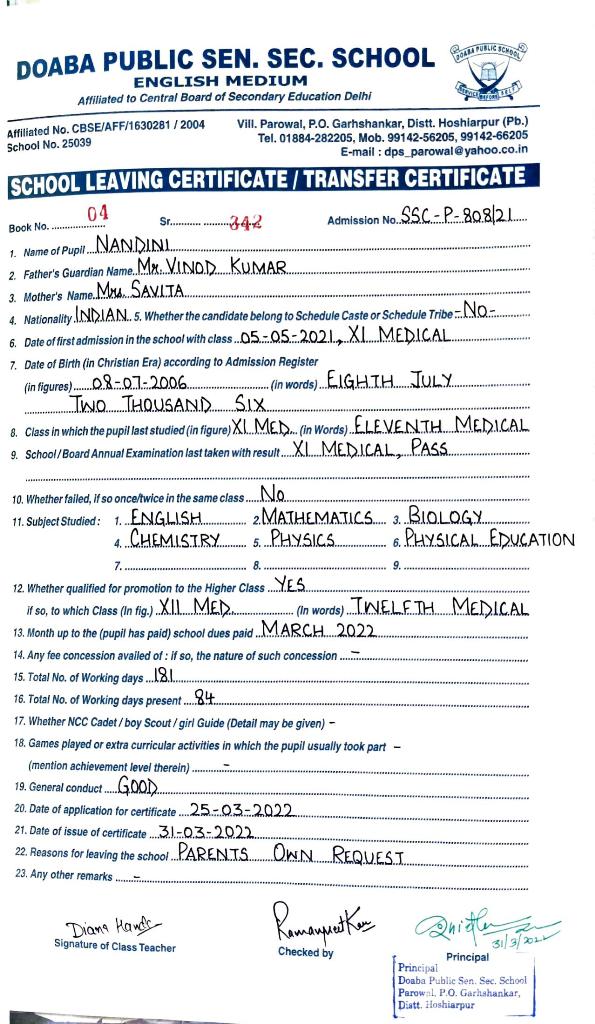 DOABA PUBLIC SEN. SEC. SCHOOL
ENGLISH MEDIUM
Affiliated to Central Board of Secondary Education Delhi
DOABA PUBLIC SCHOOL
SERVICE BEFORE SELF
Affiliated No. CBSE/AFF/1630281 / 2004
School No. 25039
Vill. Parowal, P.O. Garhshankar, Distt. Hoshiarpur (Pb.)
Tel. 01884-282205, Mob. 99142-56205, 99142-66205
E-mail : dps_parowal@yahoo.co.in
SCHOOL LEAVING CERTIFICATE / TRANSFER CERTIFICATE
Book No. 04 Sr. 342 Admission No. SSC-P-808/21
1. Name of Pupil NANDINI
2. Father's Guardian Name Mr. VINOD KUMAR
3. Mother's Name Mrs. SAVITA
4. Nationality INDIAN 5. Whether the candidate belong to Schedule Caste or Schedule Tribe -No-
6. Date of first admission in the school with class 05-05-2021, XI MEDICAL
7. Date of Birth (in Christian Era) according to Admission Register
(in figures) 08-07-2006 (in words) EIGHTH JULY
TWO THOUSAND SIX
8. Class in which the pupil last studied (in figure) XI MED. (in Words) ELEVENTH MEDICAL
9. School / Board Annual Examination last taken with result XI MEDICAL, PASS
10. Whether failed, if so once/twice in the same class No
11. Subject Studied : 1. ENGLISH 2. MATHEMATICS 3. BIOLOGY
4. CHEMISTRY 5. PHYSICS 6. PHYSICAL EDUCATION
7. 8. 9.
12. Whether qualified for promotion to the Higher Class YES
if so, to which Class (In fig.) XII MED. (In words) TWELFTH MEDICAL
13. Month up to the (pupil has paid) school dues paid MARCH 2022
14. Any fee concession availed of : if so, the nature of such concession -
15. Total No. of Working days 181
16. Total No. of Working days present 84
17. Whether NCC Cadet / boy Scout / girl Guide (Detail may be given) -
18. Games played or extra curricular activities in which the pupil usually took part -
(mention achievement level therein) -
19. General conduct GOOD
20. Date of application for certificate 25-03-2022
21. Date of issue of certificate 31-03-2022
22. Reasons for leaving the school PARENTS OWN REQUEST
23. Any other remarks -
Signature of Class Teacher
Ramanpreet Kaur
Checked by
31/3/2022
Principal
Principal
Doaba Public Sen. Sec. School
Parowal, P.O. Garhshankar,
Distt. Hoshiarpur